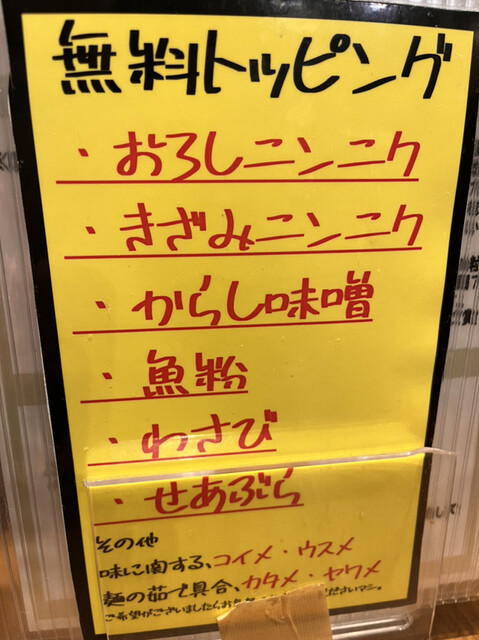 無料トッピング
・おろしニンニク
・きざみニンニク
・からし味噌
・魚粉
・わさび
・せあぶら
その他
味に関する、コイメ・ウスメ
麺の茹で具合、カタメ・ヤワメ
ご希望がございましたらお気 くださいマシ。